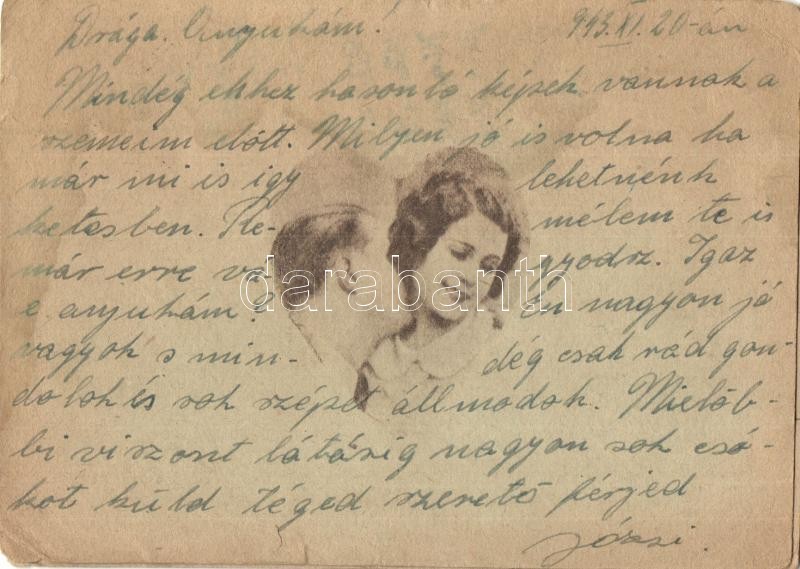 Drága Anyukám! 943.XI.20-án
Mindég ehhez hasonló képek vannak a
szemeim előtt. Milyen jó is volna ha
már mi is igy lehetnénk
ketesben. Re- mélem te is
már erre vá gyodsz. Igaz
e anyukám? Én nagyon jó
vagyok s min- dég csak rád gon-
dolok és sok szépet állmodok. Mielőb-
bi viszont látásig nagyon sok csó-
kot küld téged szerető férjed
Józsi.
darabanth